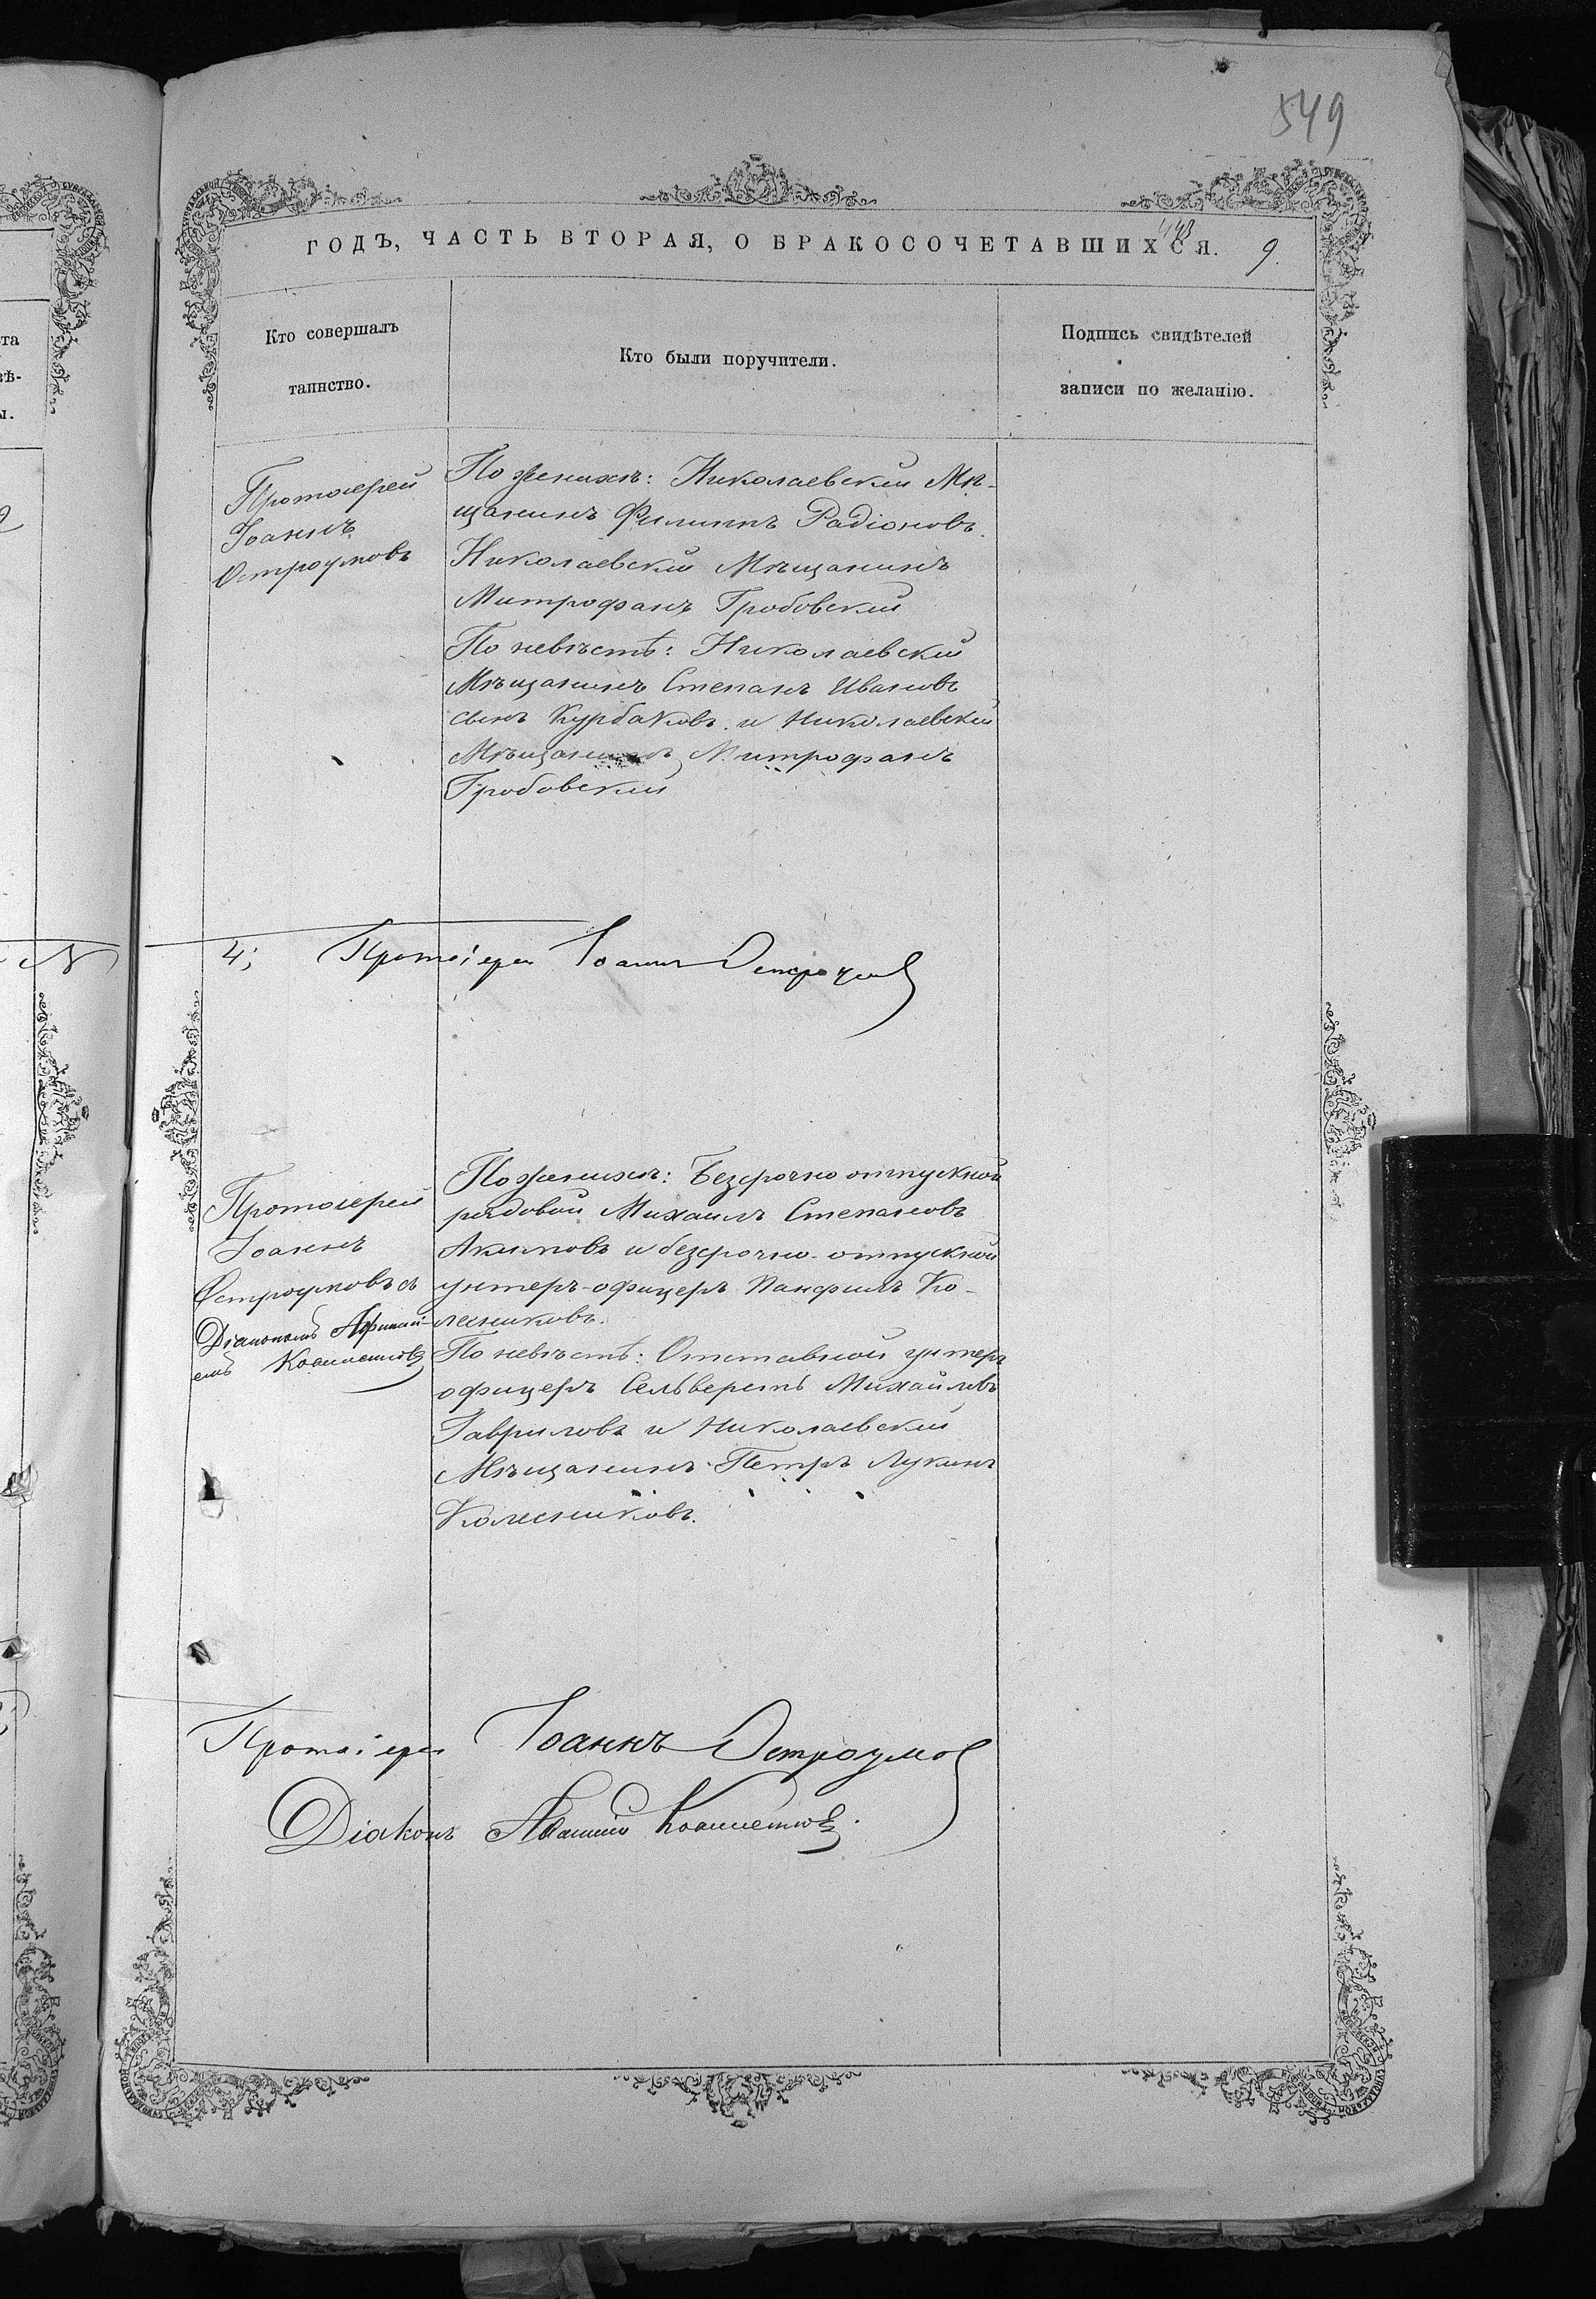 549
443
ГОДЪ, ЧАСТЬ ВТОРАЯ, О БРАКОСОЧЕТАВШИХСЯ. 9.
Кто совершалъ
таинство.
Кто были поручители.
Подпись свидѣтелей
записи по желанію.
Протоіерей
Іоаннъ
Остроумовъ
По женихѣ: Николаевскій Мѣ-
щанинъ Филиппъ Радіоновъ.
Николаевскій Мѣщанинъ
Митрофанъ Гробовскій
По невѣстѣ: Николаевскій
Мѣщанинъ Степанъ Ивановъ
сынъ Курбаковъ и Николаевскій
Мѣщанинъ Митрофанъ
Гробовскій
4; Протоіерей Іоаннъ Остроумов
Протоіерей
Іоаннъ
Остроумовъ съ
Діакономъ
По женихѣ: Безсрочно отпускной
рядовой Михаилъ Степановъ
Акимовъ и безсрочно-отпускной
унтеръ-офицеръ Панфилъ Ко-
лесниковъ.
По невѣстѣ: Отставной унтеръ
офицеръ Сельверстъ Михайловъ
Гавриловъ и Николаевскій
Мѣщанинъ Петръ Лукинъ
Колесниковъ.
Протоіерей Іоаннъ Остроумов
Діаконъ
та
вѣ-
ы.